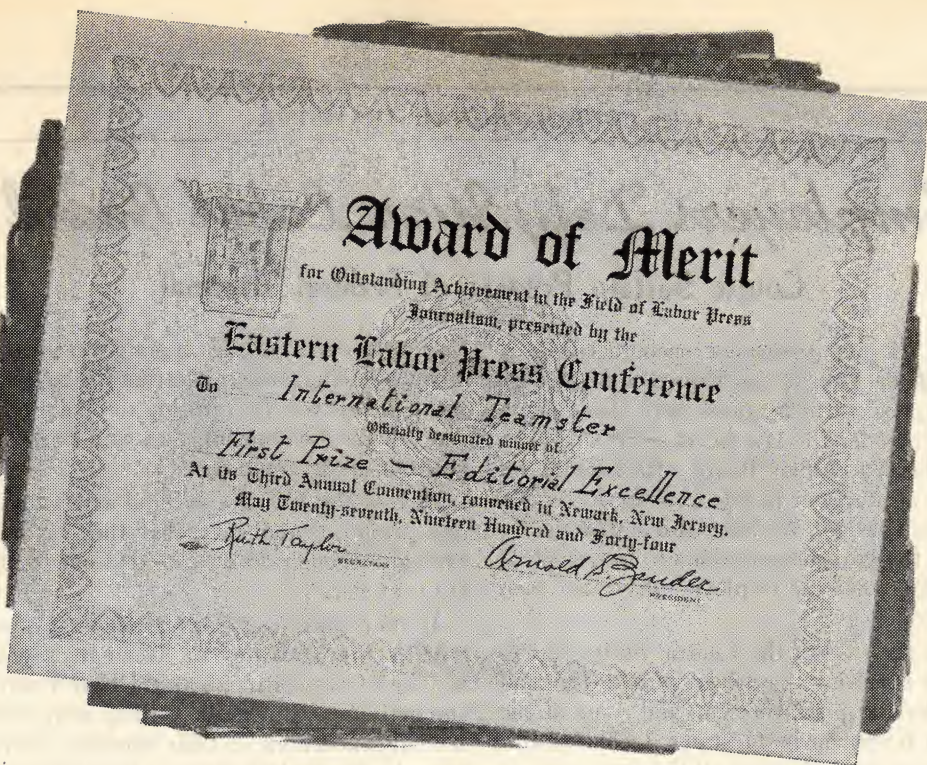 Award of Merit
for Outstanding Achievement in the Field of Labor Press
Journalism, presented by the
Eastern Labor Press Conference
To International Teamster
Officially designated winner of
First Prize – Editorial Excellence
At its Third Annual Convention, convened in Newark, New Jersey,
May Twenty-seventh, Nineteen Hundred and Forty-four
Ruth Taylor
SECRETARY
Arnold S. Zander
PRESIDENT